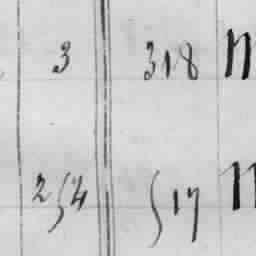 3 318
254 517